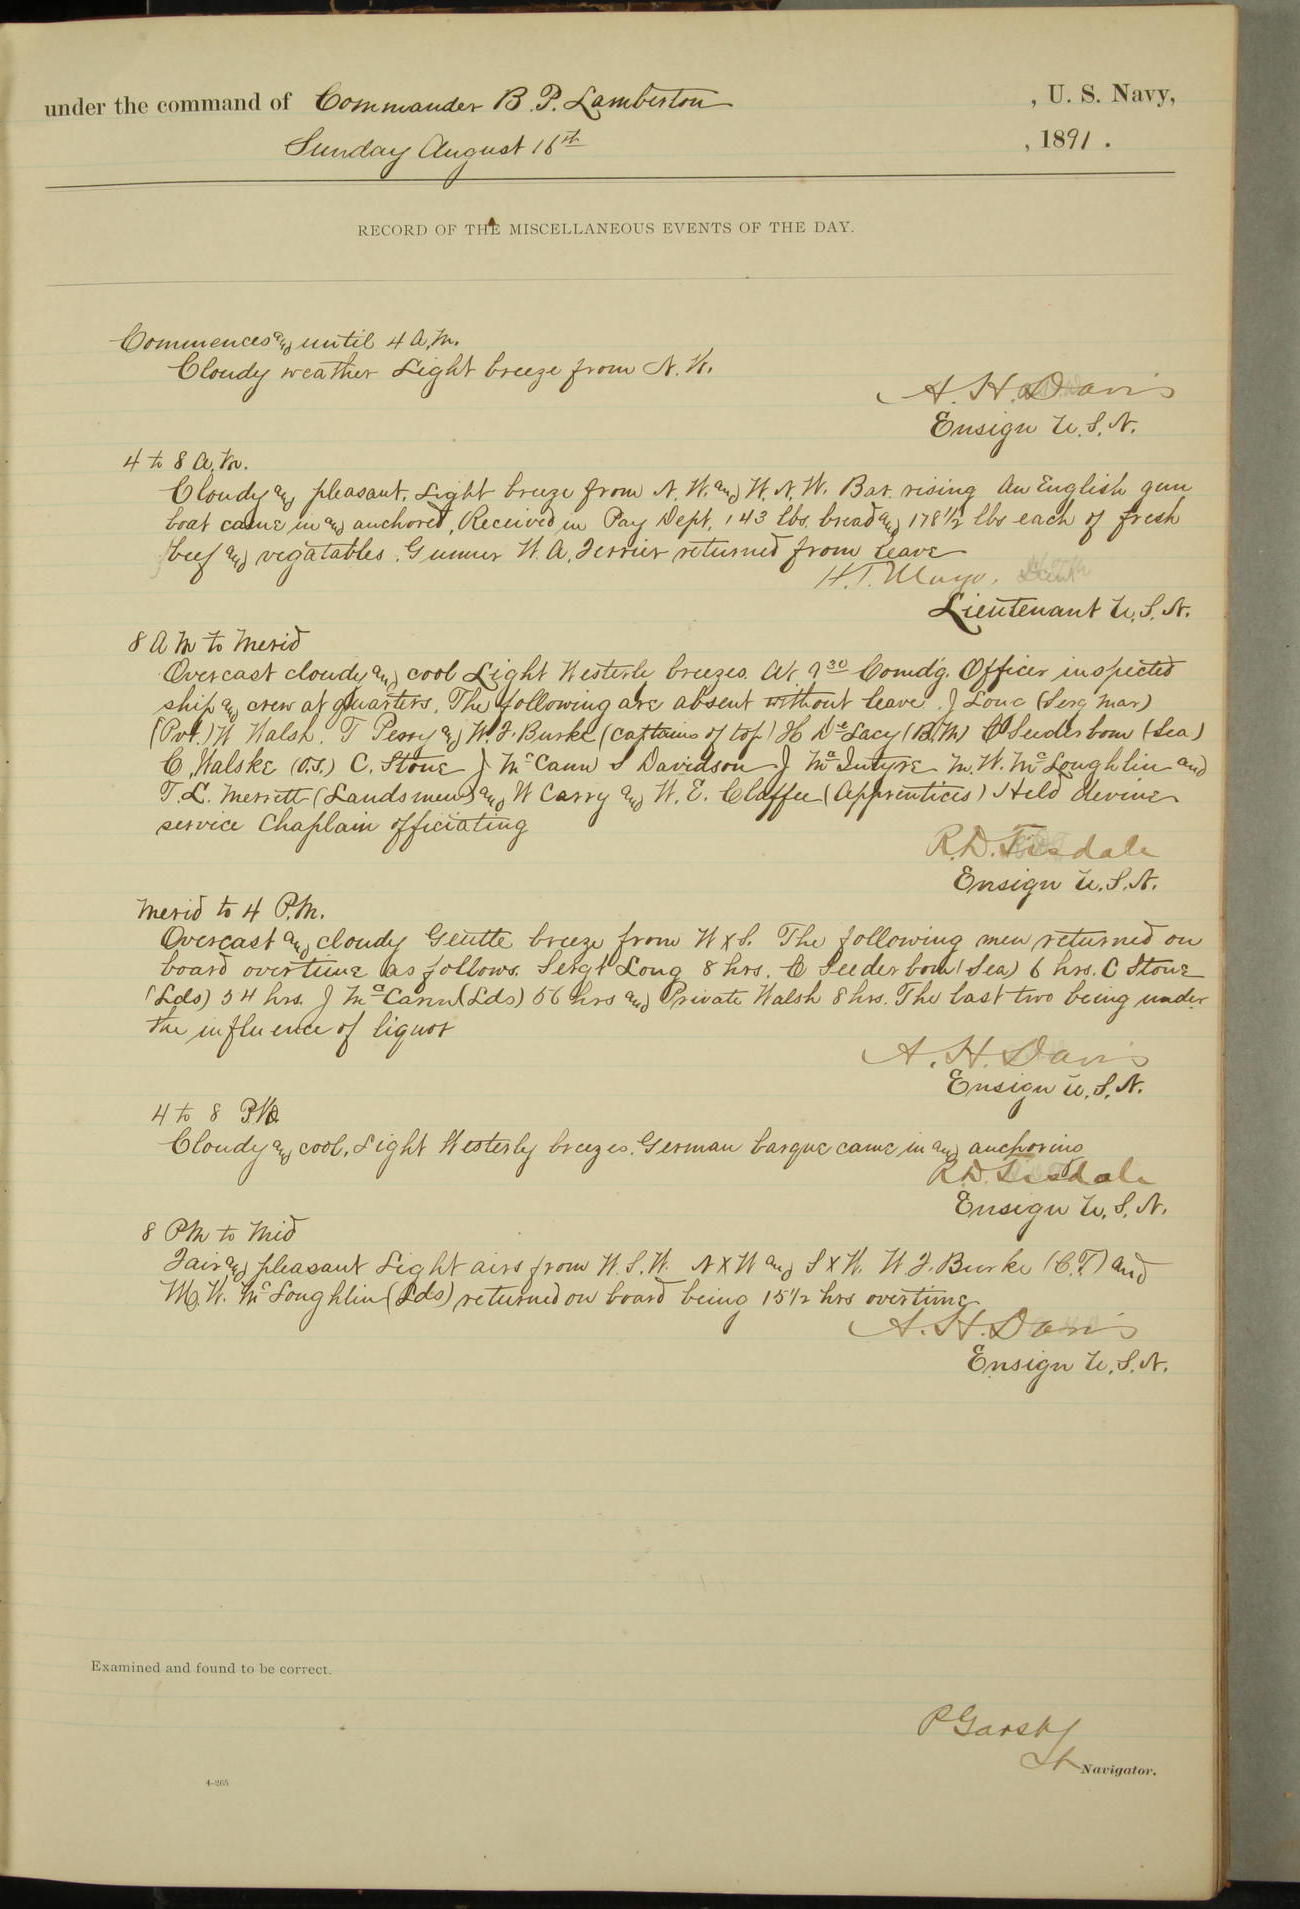 under the command of Commander B. P. Lamberton , U. S. Navy,
Sunday August 16th , 1891.
RECORD OF THE MISCELLANEOUS EVENTS OF THE DAY.
Commences and until 4 A.M.
Cloudy weather Light breeze from N. W.
A. H. Davis
Ensign U. S. N.
4 to 8 A.M.
Cloudy and pleasant. Light breeze from N. W. and W. N. W. Bar. rising An English gun
boat came in and anchored, Received in Pay Dept, 143 lbs. bread and 178 1/2 lbs each of fresh
beef and vegatables. Gunner W. A. Ferrier returned from leave
H. T. Mayo,
Lieutenant U. S. N.
8 A M to Merid
Overcast cloudy and cool Light Westerly breezes. At 9 30 Comdg. Officer inspected
ship and crew at quarters. The following are absent without leave. J Long (Serg Mar)
(Pvt.) W Walsh. T Perry and W. F. Burke (captains of top) H De Lacy (B.M) C Seederbom (Sea)
C. Walske (O.S.) C. Stone J McCann S Davidson J McIntyre M. W. McLoughlin and
T. L. Merritt (Landsmen) and W Carry and W. E. Claffee (Apprentices) Held devine
service Chaplain officiating
R. D. Tisdale
Ensign U. S. N.
Merid to 4 P.M.
Overcast and cloudy Gentle breeze from W x S. The following men returned on
board overtime as follows. Sergt Long 8 hrs. C Seederbom (Sea) 6 hrs. C Stone
(Lds) 54 hrs. J McCann (Lds) 56 hrs and Private Walsh 8 hrs. The last two being under
the influence of liquor
A. H. Davis
Ensign U. S. N.
4 to 8 P.M.
Cloudy and cool. Light Westerly breezes. German barque came in and anchoring
R. D. Tisdale
Ensign U. S. N.
8 PM to Mid
Fair and pleasant Light airs from W. S. W. N x W and S x W. W F. Burke (C.T.) and
M. W. McLoughlin (Lds) returned on board being 15 1/2 hrs overtime
A. H. Davis
Ensign U. S. N.
Examined and found to be correct.
P Garst
Lt Navigator.
4-265